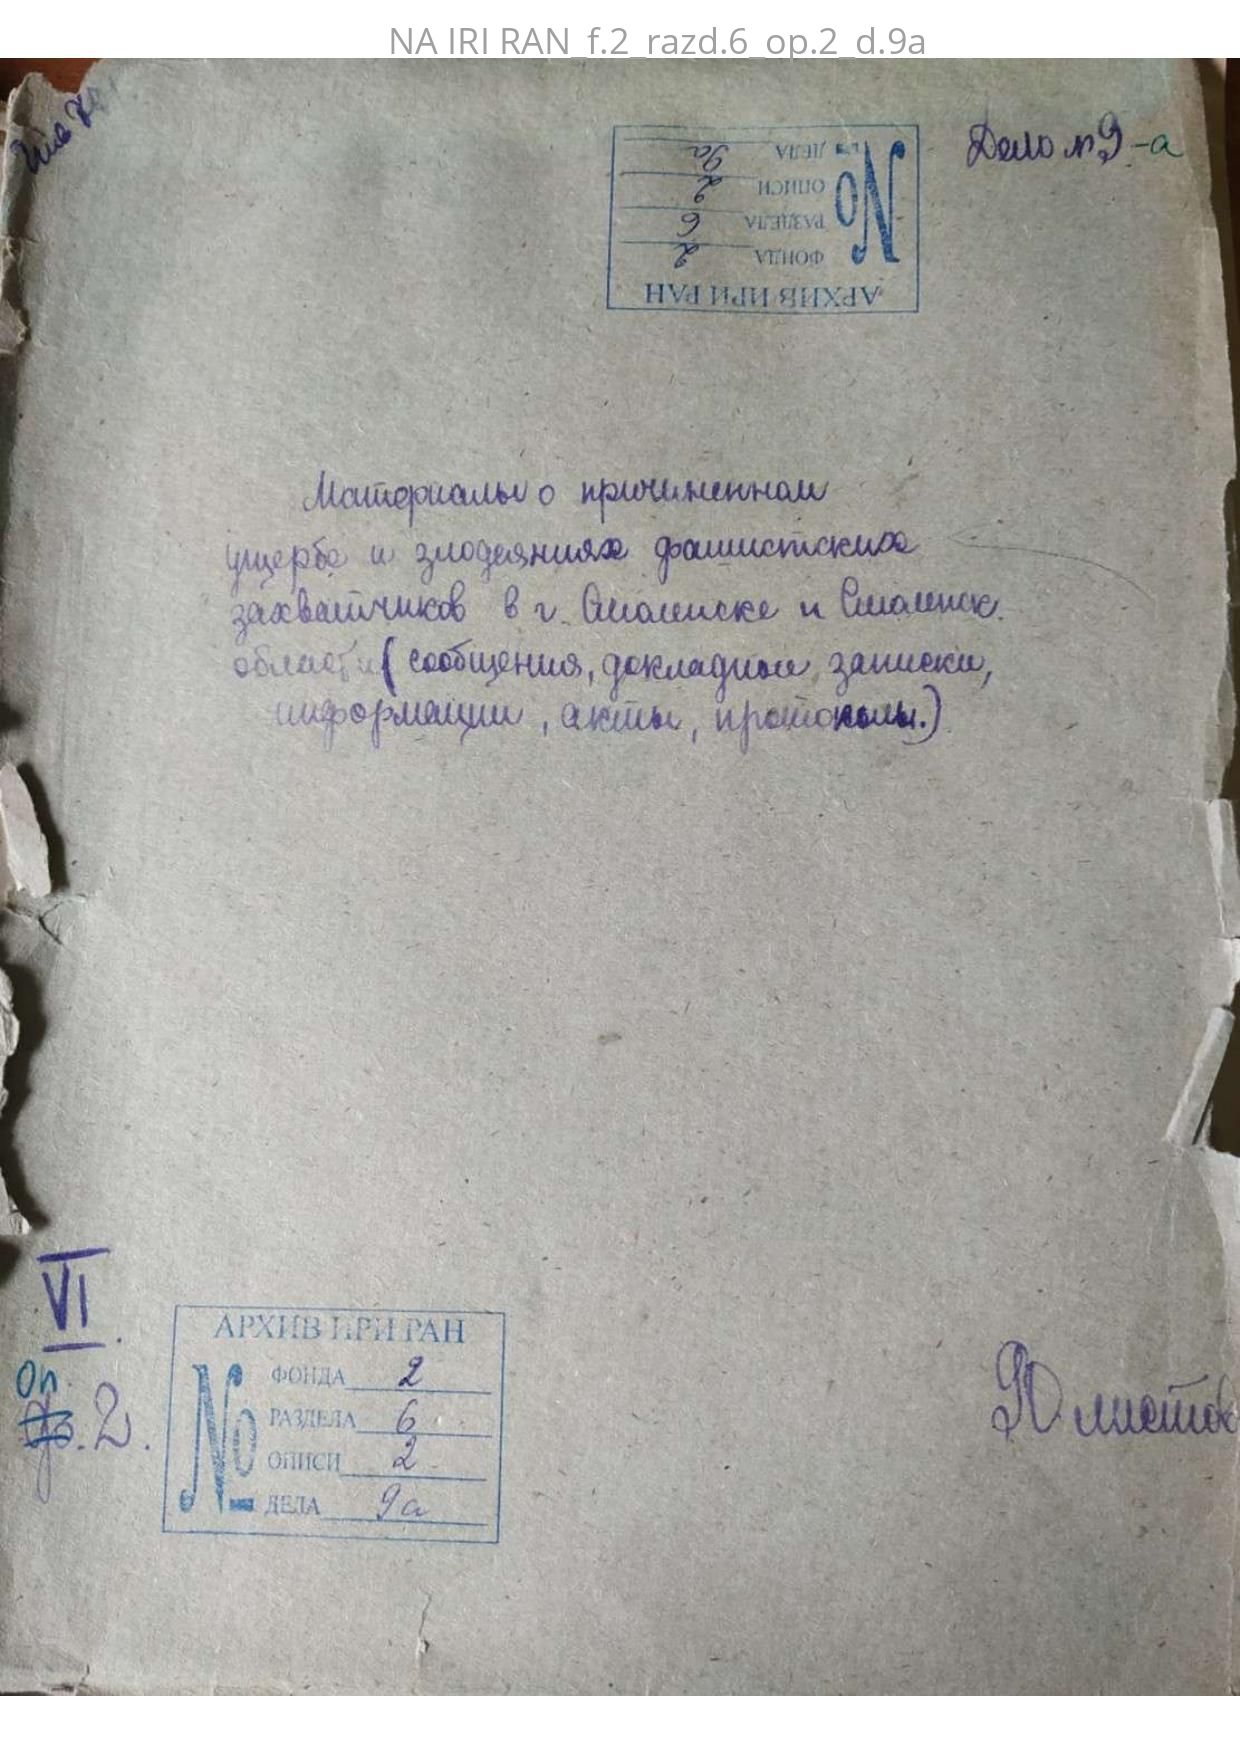 NA IRI RAN_f.2_razd.6_op.2_d.9a
Дело №9-а
АРХИВ ИРИ РАН
№
ФОНДА 2
РАЗДЕЛА 6
ОПИСИ 2
ДЕЛА 9а
Материалы о причиненном
ущербе и злодеяниях фашистских
захватчиков в г. Смоленске и Смоленск.
области (сообщения, докладные записки,
информации, акты, протоколы.)
VI.
Оп.
2.
АРХИВ ИРИ РАН
№
ФОНДА 2
РАЗДЕЛА 6
ОПИСИ 2
ДЕЛА 9а
90 листов